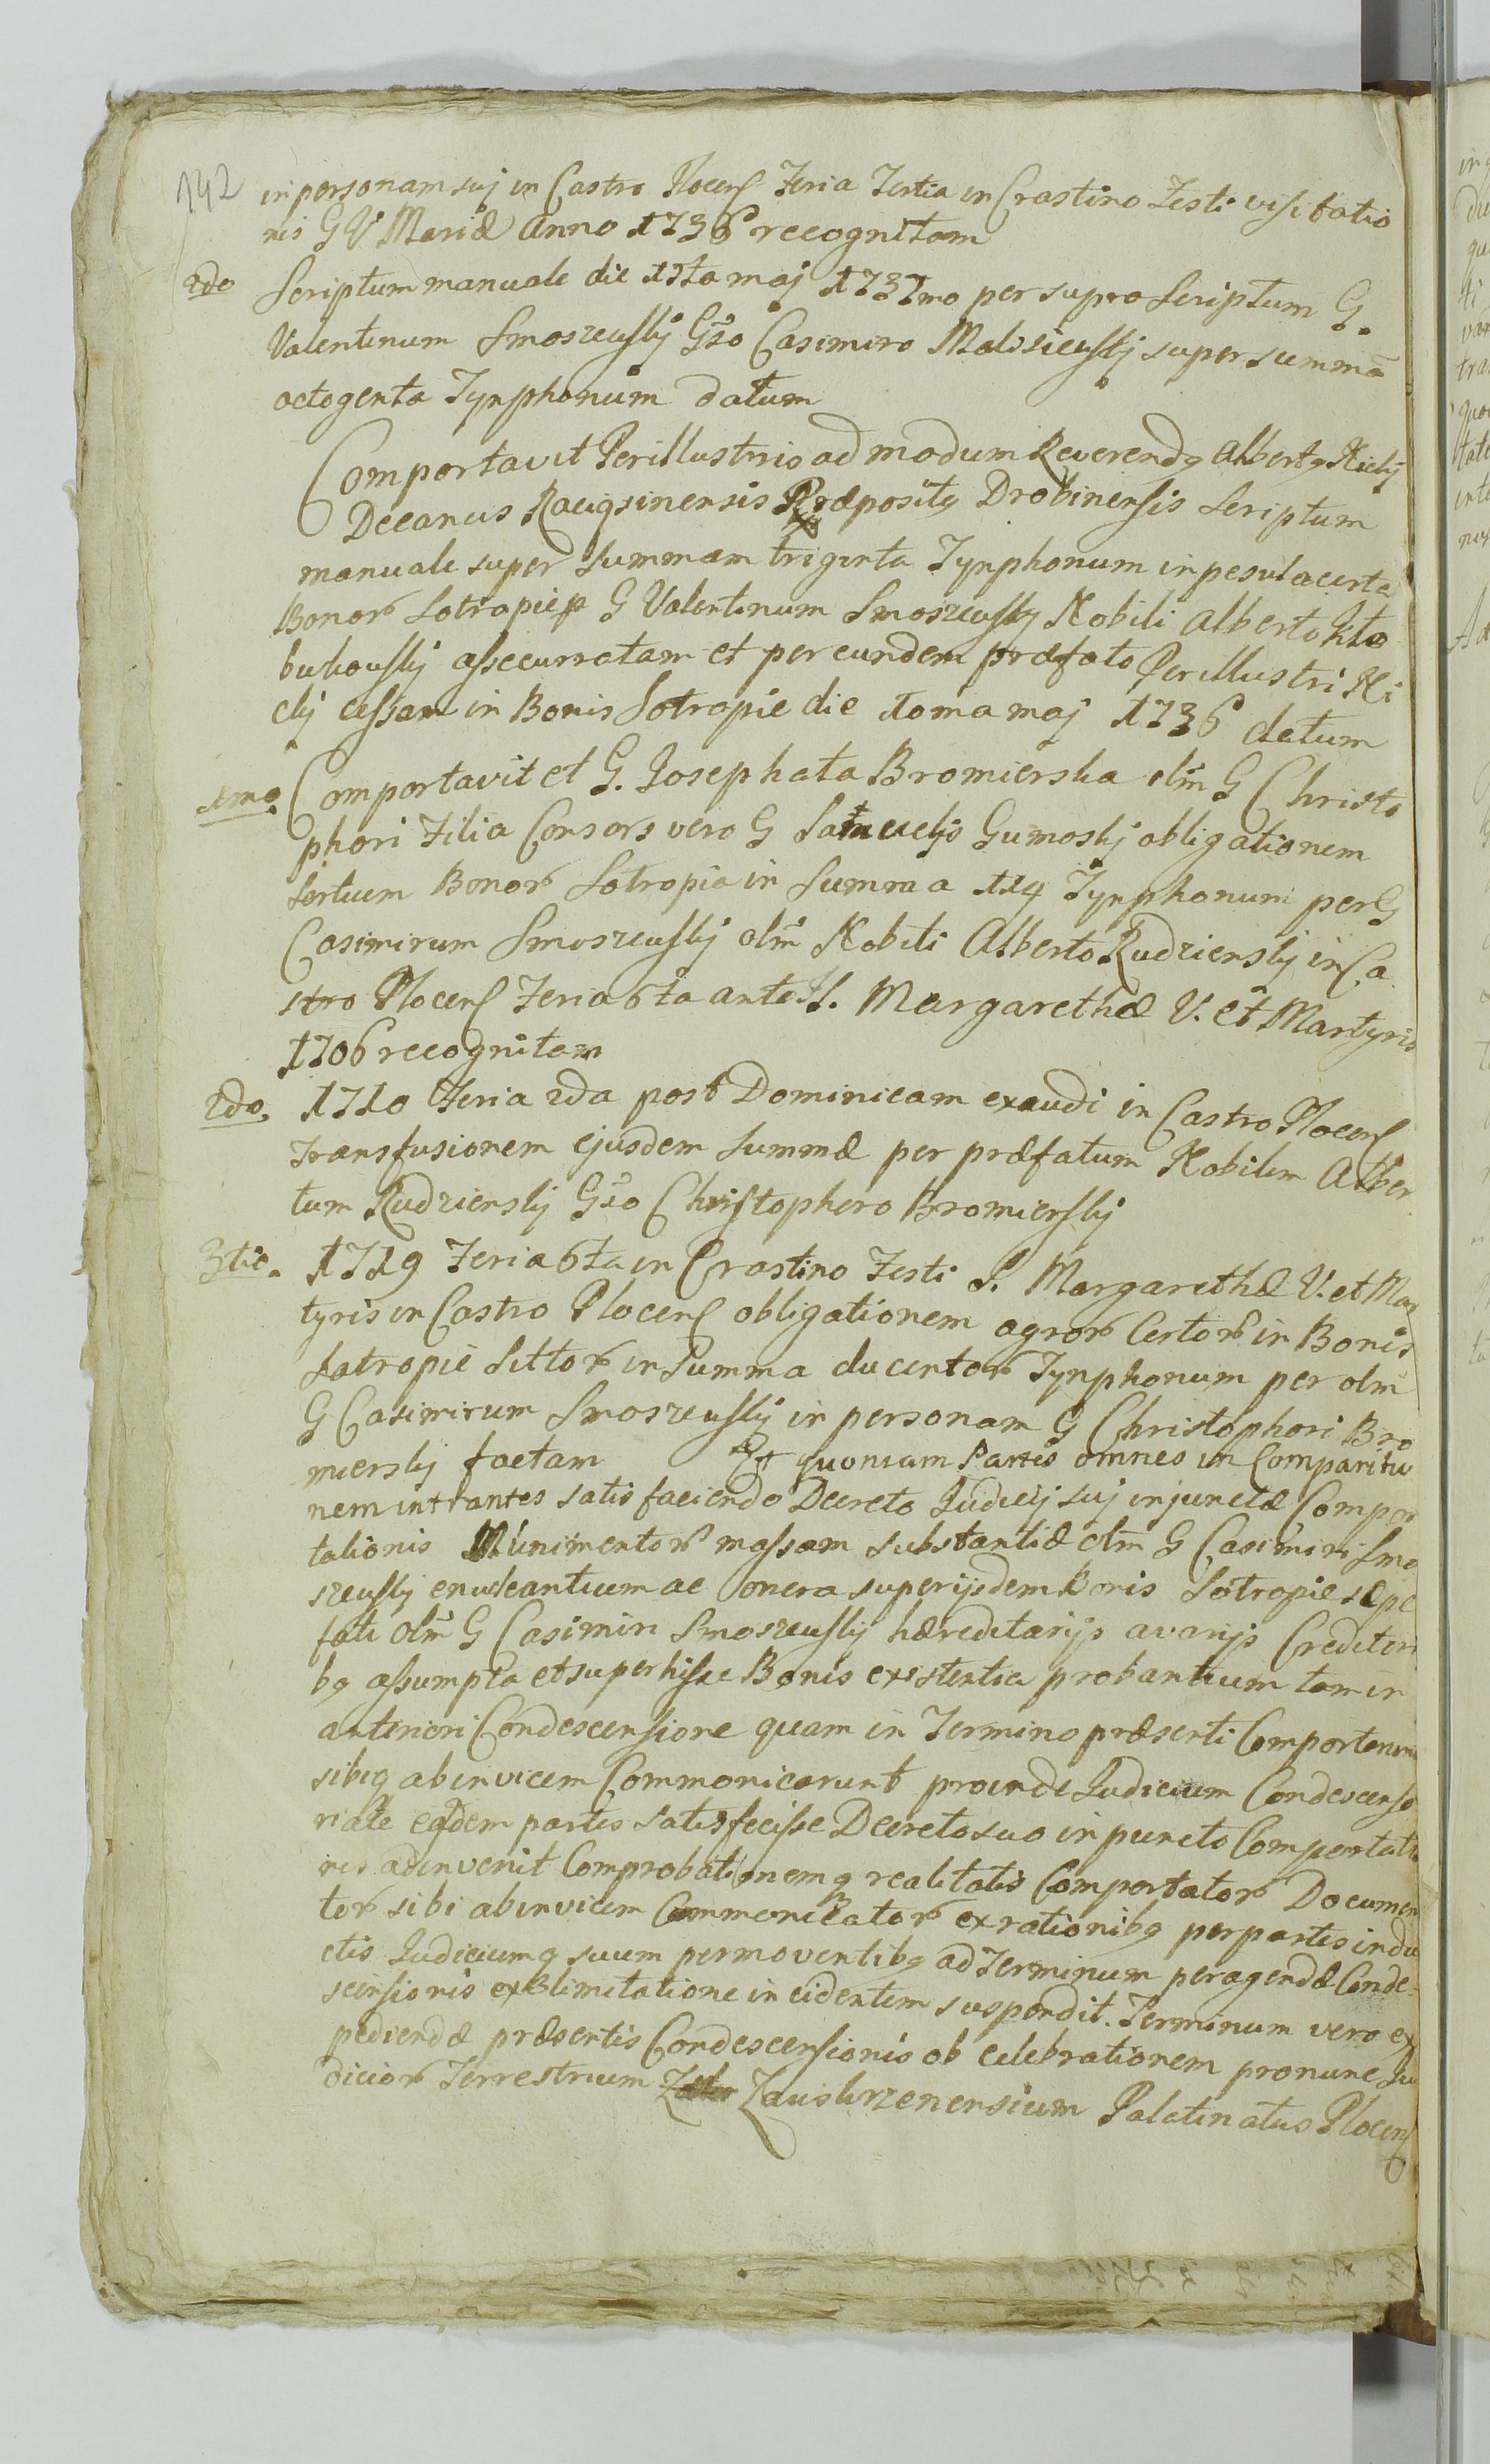 142
in personam suj in Castro Plocens Feria Tertia in Crastino Festi visitatio
nis G V Mariæ Anno 1736 recognitam
2do Scriptum manuale die 17ta maj 1737mo per supra Scriptum G.
Valentinum Smoszewskj Gso Casimiro Malisiewskj super summã
octogenta Tynphonum datum
Comportavit Perillustris admodum Reverendq Albertq Kickj
Decanus Raciqsinensis Præpositq Drobinensis Scriptum
manuale super Summam triginta Tynphonum in pesula certa
Bonor Sotropie p G Valentinum Smoszewskj Nobili Alberto
bukowskj assecurratam et per eundem præfato Perillustri Ki
ckj cessam in Bonis Sotropie die 10ma maj 1736 datum
1mo. Comportavit et G. Josephata Bromierska olim G Christo
phori Filia Consors vero G Samuelis Gumoskj obligationem
Sertuum Bonor Sotropia in Summa 114 Tynphonum per G
Casimirum Smoszewskj olim Nobili Alberto Rudzienskj in Ca
stro Plocens Feria 6ta ante S. Margarethæ V. et Martyris
1706 recognitam
2do. 1710 Feria 2da post Dominicam exaudi in Castro Plocens
Transfusionem ejusdem Summæ per præfatum Nobilem Alber
tum Rudzienskj Gso Christophero Bromierskj
3tio. 1719 Feria 6ta in Crastino Festi S. Margarethæ V. et Mar
tyris in Castro Plocens obligationem agror Certor in Bonis
Sotropie Sittor in Summa ducentor Tynphonum per olim
G Casimirum Smoszewskj in personam G Christophori Bro
mierskj factam Et quoniam Partes omnes in Comparitio
nem intrantes satis faciendo Decreto Judicij suj injunctæ Compor
tationis Munimentor massam substantiæ olim G Casimiri Smo
szewskj enucleantium ac onera super ijsdem Bonis Sotropie sæpe
fati olim G Casimiri Smoszewskj hæreditarijs avarijs Creditori
bq assumpta et super hisce Bonis existentia probantium tam in
anteriori Condescensione quam in Termino præsenti Comportarunt
sibiq ab invicem Commonicarunt proinde Judicium Condescenso
riale eqdem partes satisfecisse Decreto suo in puncto Comportatio
nis adinvenit Comprobationemq realitatis Comportator Documen
tor sibi ab invicem Commonicator ex rationibq per partes indu
ctis Judiciumq suum permoventibq ad Terminum peragendæ Conde=
scensionis ex Limitatione incidentem suspendit. Terminum vero ex
pediendæ præsentis Condescensionis ob celebrationem pro nunc Ju
dicior Terrestrium Zawskrzenensium Palatinatus Plocens